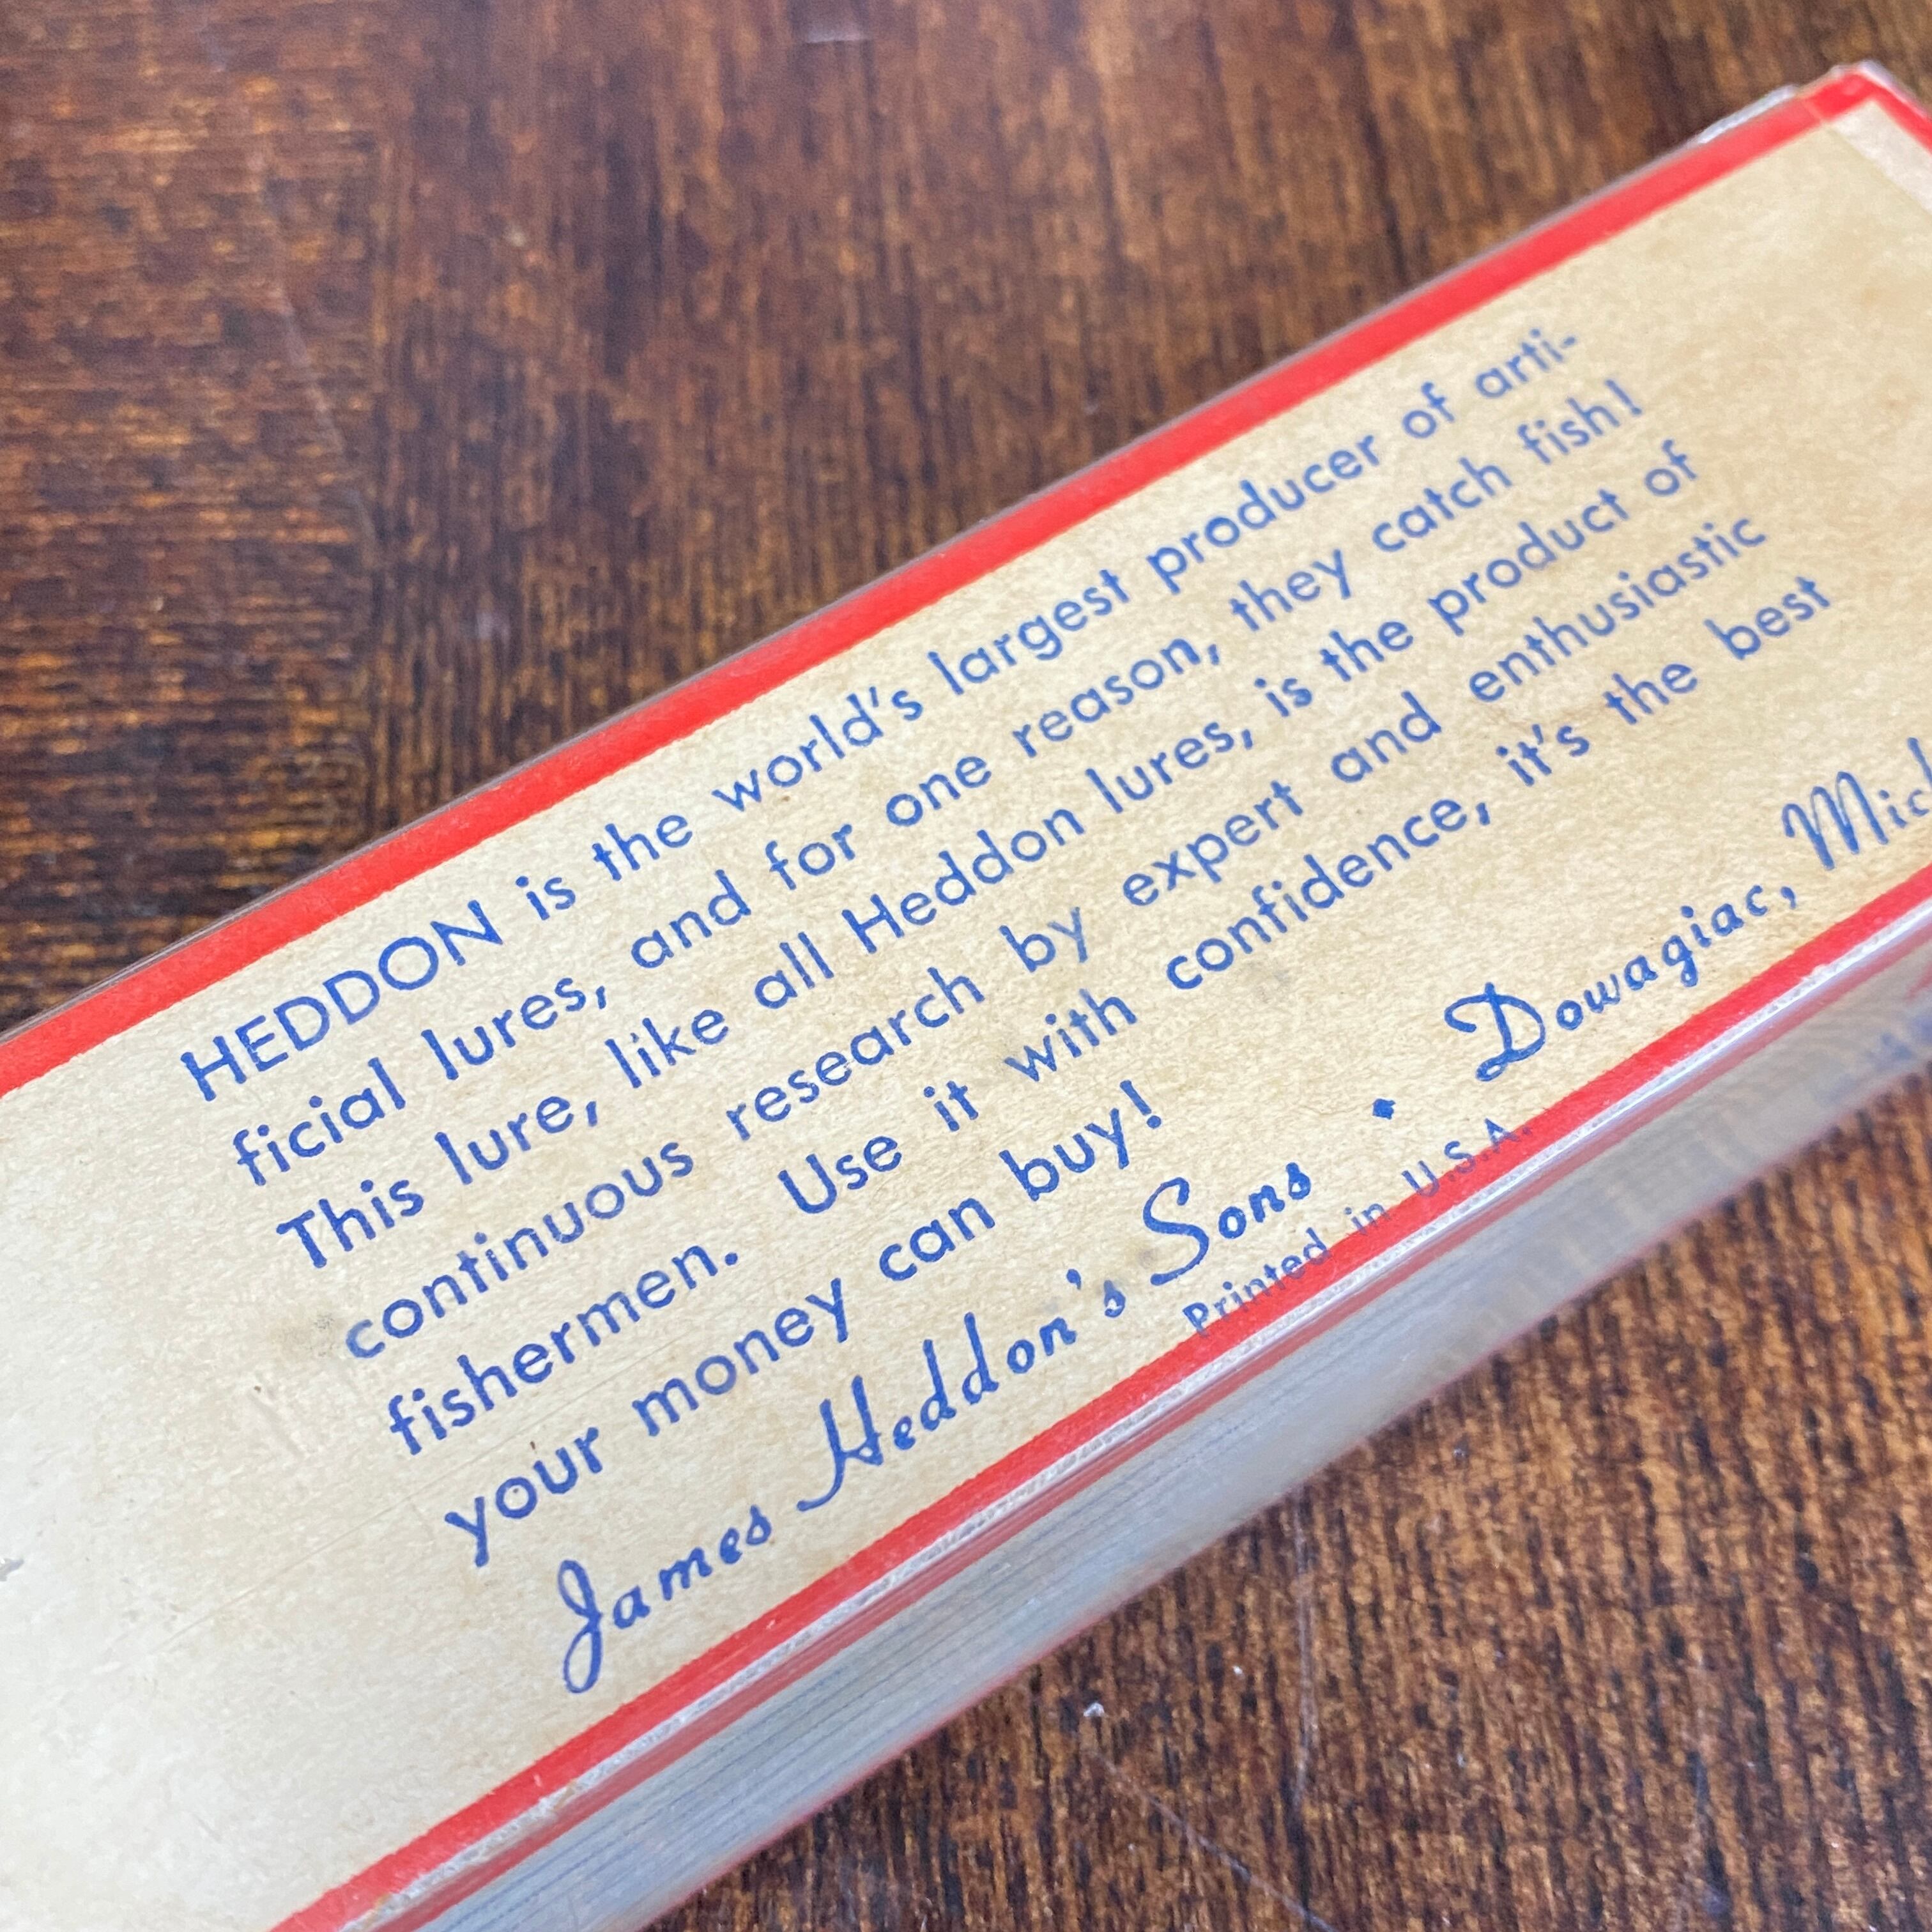 HEDDON is the world's largest producer of arti-
ficial lures, and for one reason, they catch fish!
This lure, like all Heddon lures, is the product of
continuous research by expert and enthusiastic
fishermen. Use it with confidence, it's the best
your money can buy!
James Heddon's Sons • Dowagiac, Mic
Printed in U.S.A.